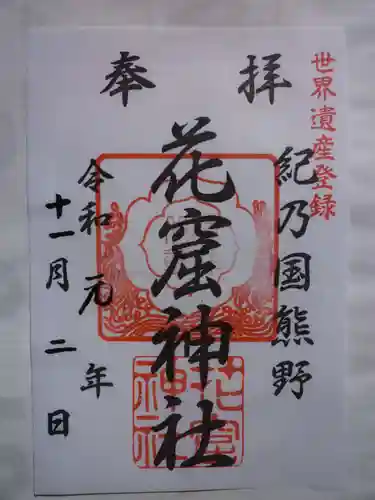 世界遺産登録
奉拝
紀乃国熊野
花窟神社
令和元年
十一月二日